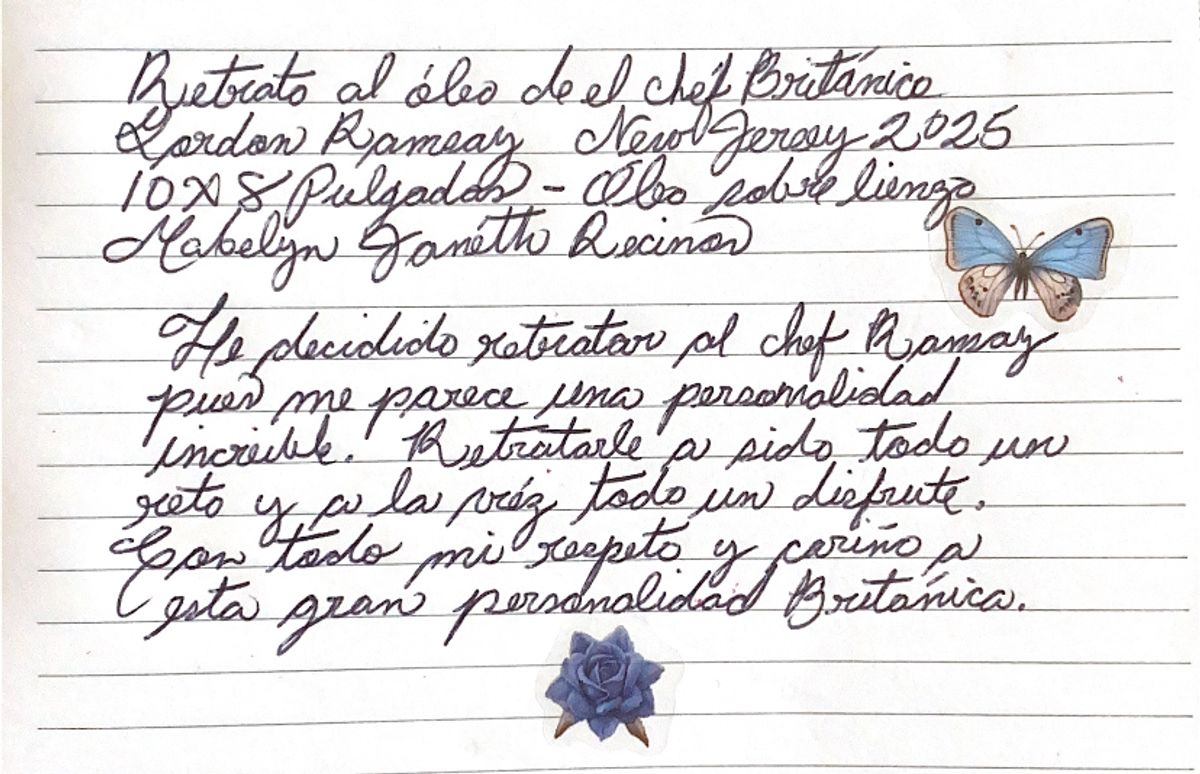 Retrato al óleo de el chéf Británico
Gordon Ramsay New Jersey 2025
10 X 8 Pulgadas - Óleo sobre lienzo
Mabelyn Janeth Recinos
He decidido retratar al chef Ramsay
pues me parece una personalidad
increible. Retratarle a sido todo un
reto y a la véz todo un disfrute.
Con todo mi respeto y cariño a
esta gran personalidad Británica.